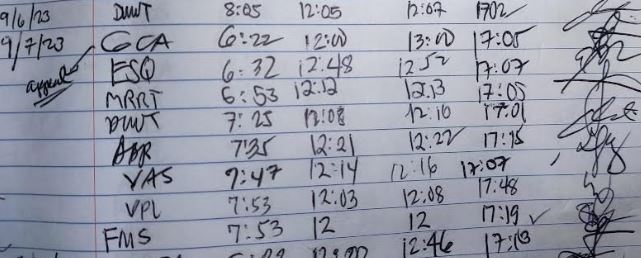 9/6/23 DMWT 8:05 12:05 12:07 1702
9/7/23 GCA 6:22 12:00 13:00 17:05
ESQ 6:32 12:48 12 52 17:07
MRRT 6:53 12:12 12:13 17:05
DMWT 7:25 12:08 12:10 17:01
7:35 12:21 12:22 17:15
VAS 7:47 12:14 12:16 17:07
VPL 7:53 12:03 12:08 17:48
FMS 7:53 12 12 17:19
12:46